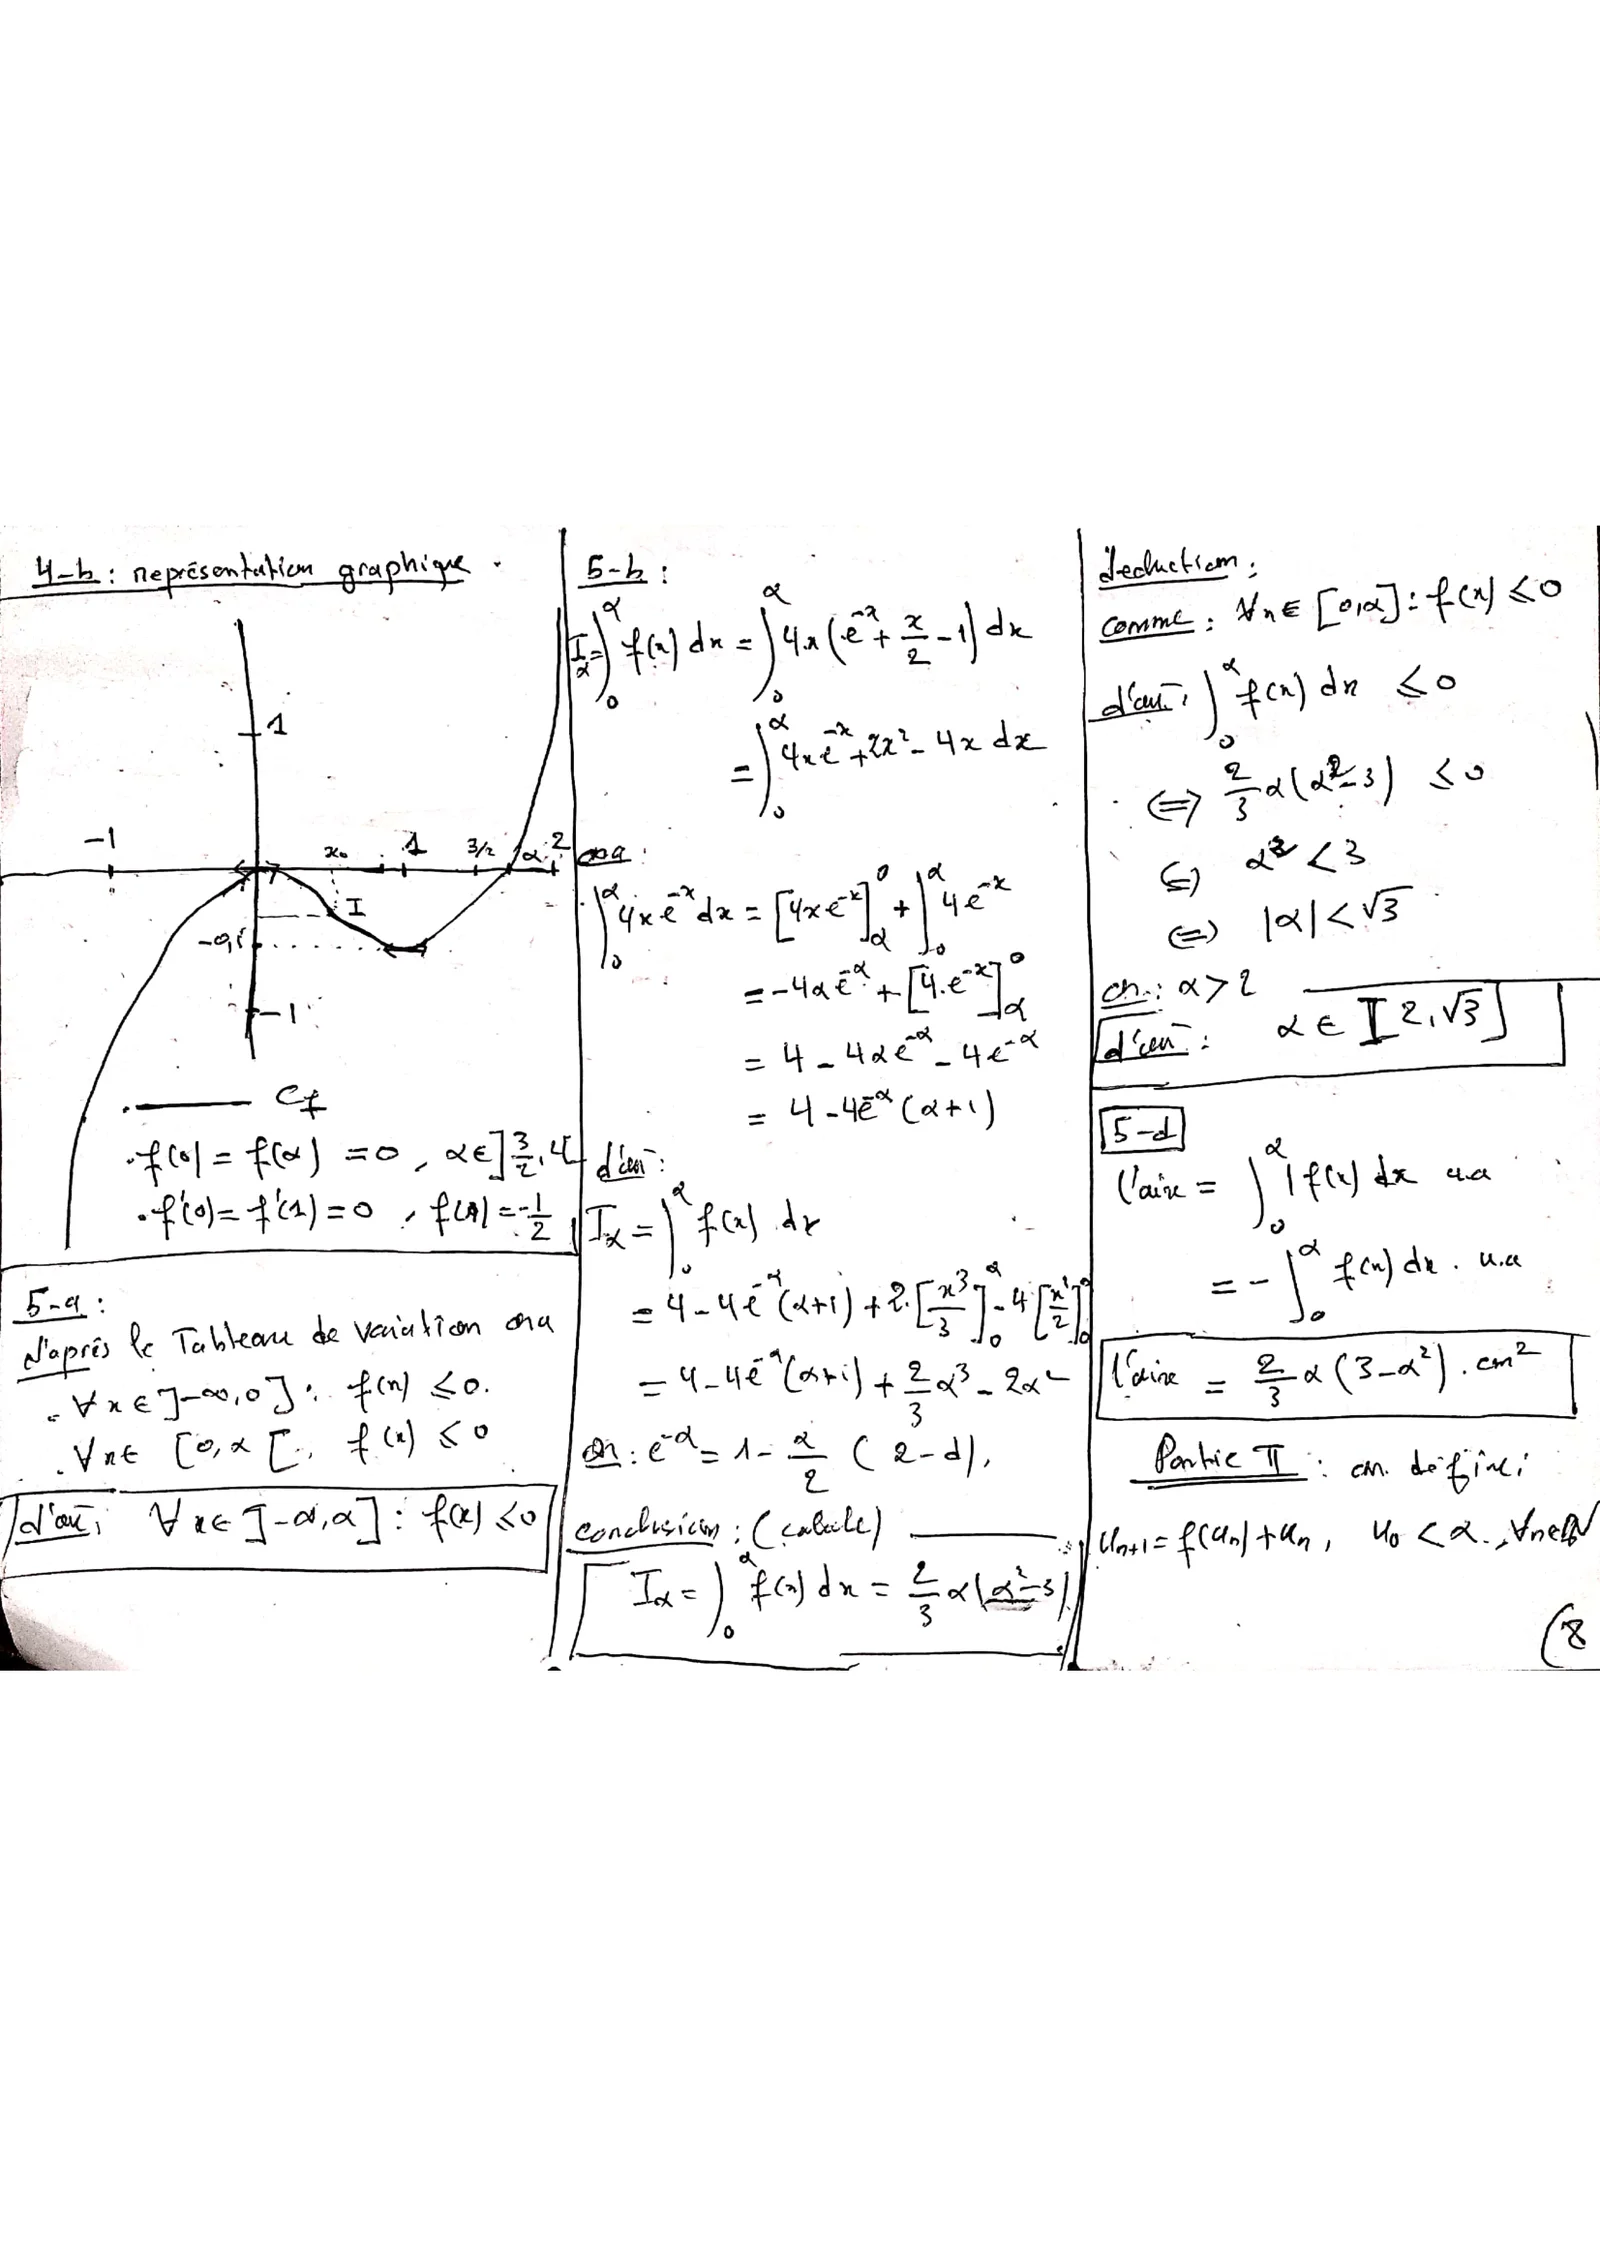 4-b : représentation graphique.
1
-1
x₀
1
3/2
α
2
I
-1
Cf
. f(0) = f(α) = 0, α ∈ ]3/2, 4[
. f'(0) = f'(1) = 0, f(1) = -1/2
5-a :
d'après le Tableau de variation ona
. ∀x ∈ ]-∞,0] : f(x) ≤ 0.
. ∀x ∈ [0,α[, f(x) ≤ 0
d'où, ∀x ∈ ]-∞,α] : f(x) ≤ 0
5-b :
I_α = ∫₀^α f(x) dx = ∫₀^α 4x(e^-x + x/2 - 1) dx
= ∫₀^α 4xe^-x + 2x² - 4x dx
ona :
∫₀^α 4xe^-x dx = [4xe^-x]_α^0 + ∫₀^α 4e^-x
= -4αe^-α + [4.e^-x]_α^0
= 4 - 4αe^-α - 4e^-α
= 4 - 4e^-α (α+1)
d'où :
I_α = ∫₀^α f(x) dx
= 4 - 4e^-α (α+1) + 2.[x³/3]_0^α - 4[x²/2]_0^α
= 4 - 4e^-α (α+1) + 2/3 α³ - 2α²
or : e^-α = 1 - α/2 (2-d),
conclusion : (calcule)
I_α = ∫₀^α f(x) dx = 2/3 α(α²-3)
déduction :
comme : ∀x ∈ [0,α] : f(x) ≤ 0
d'où, ∫₀^α f(x) dx ≤ 0
⟺ 2/3 α(α²-3) ≤ 0
⟺ α² < 3
⟺ |α| < √3
on : α > 2
d'où : α ∈ [2,√3]
5-d
l'aire = ∫₀^α |f(x)| dx u.a
= - ∫₀^α f(x) dx . u.a
l'aire = 2/3 α (3-α²) . cm²
Partie II : on définie :
u_n+1 = f(u_n) + u_n, u₀ < α., ∀n∈ℕ
(8